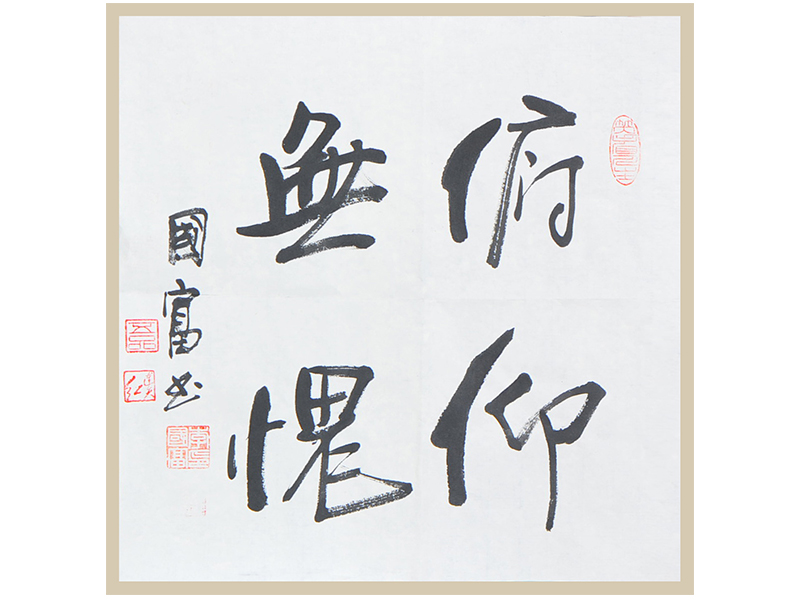 俯仰
無愧
國富书